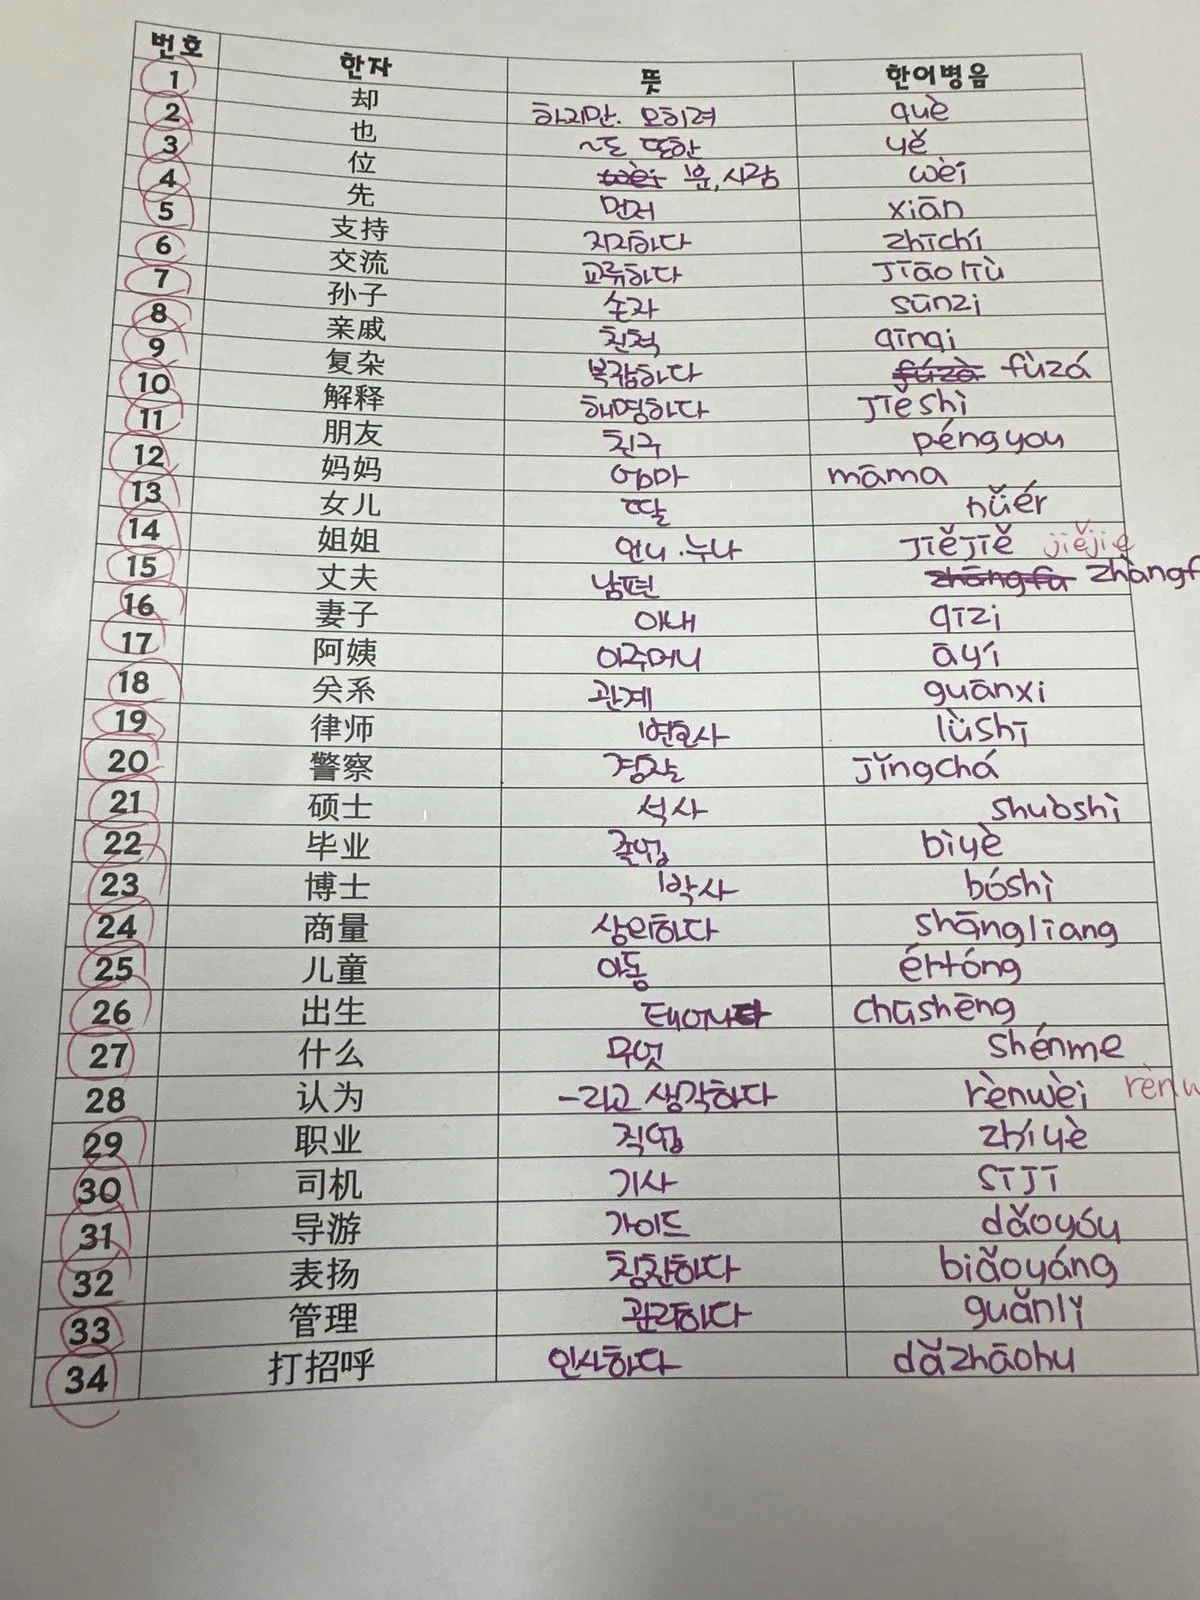 번호 한자 뜻 한어병음
1 却 하지만. 오히려 què
2 也 ~도 또한 yě
3 位 wèi 분, 사람 wèi
4 先 먼저 xiān
5 支持 지지하다 zhīchí
6 交流 교류하다 jiāoliù
7 孙子 손자 sūnzi
8 亲戚 친척 qīnqi
9 复杂 복잡하다 fúzà fùzá
10 解释 해명하다 jiěshì
11 朋友 친구 péngyou
12 妈妈 엄마 māma
13 女儿 딸 nǚér
14 姐姐 언니.누나 jiějiě jiějie
15 丈夫 남편 zhāngfu zhàngf
16 妻子 아내 qīzi
17 阿姨 아주머니 āyí
18 关系 관계 guānxi
19 律师 변호사 lǜshī
20 警察 경찰 jǐngchá
21 硕士 석사 shuòshì
22 毕业 졸업 bìyè
23 博士 박사 bóshì
24 商量 상의하다 shānglīang
25 儿童 아동 értóng
26 出生 태어나다 chūshēng
27 什么 무엇 shénme
28 认为 -라고 생각하다 rènwèi rènw
29 职业 직업 zhíyè
30 司机 기사 sījī
31 导游 가이드 dǎoyóu
32 表扬 칭찬하다 biǎoyáng
33 管理 관리하다 guǎnlǐ
34 打招呼 인사하다 dǎzhāohu